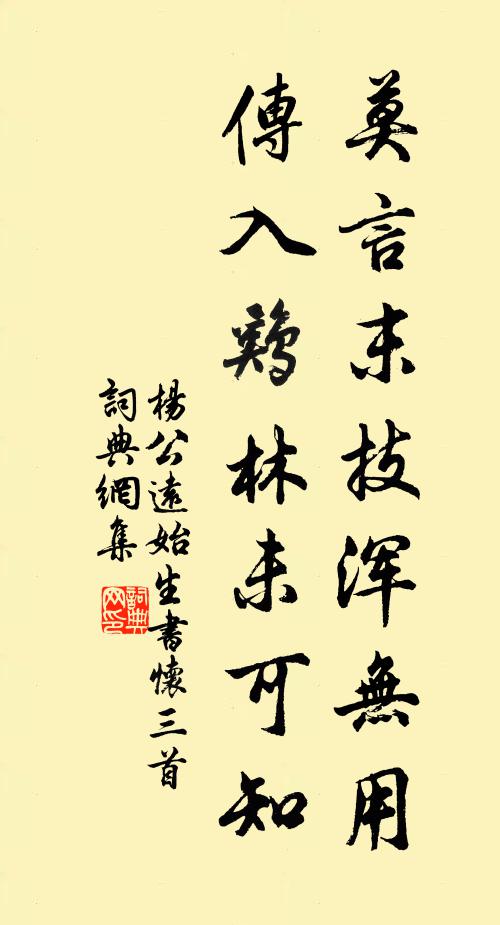 莫言末技浑無用
傳入鷄林未可知
楊公遠始生書懷三首
詞典網集
詞典
网印